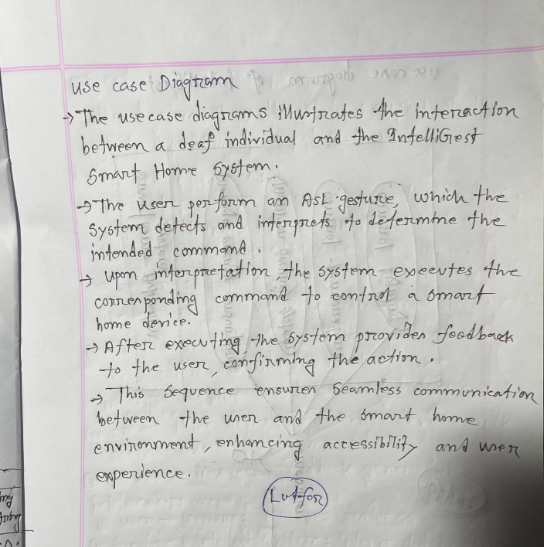 use case Diagram
→ The use case diagrams illustrates the interaction
between a deaf individual and the IntelliGest
Smart Home System.
→ The user perform an ASL gesture, which the
System detects and interprets to determine the
intended command.
→ Upon interpretation, the system executes the
corresponding command to control a smart
home device.
→ After executing the system provides feedback
to the user, confirming the action.
→ This Sequence ensures seamless communication
between the user and the smart home
environment, enhancing accessibility and user
experience.
Lutfor